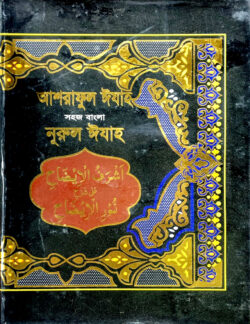 আশরাফুল ঈযাহ
সহজ বাংলা
নূরুল ঈযাহ
اشرف الايضاح
على شرح
نور الايضاح